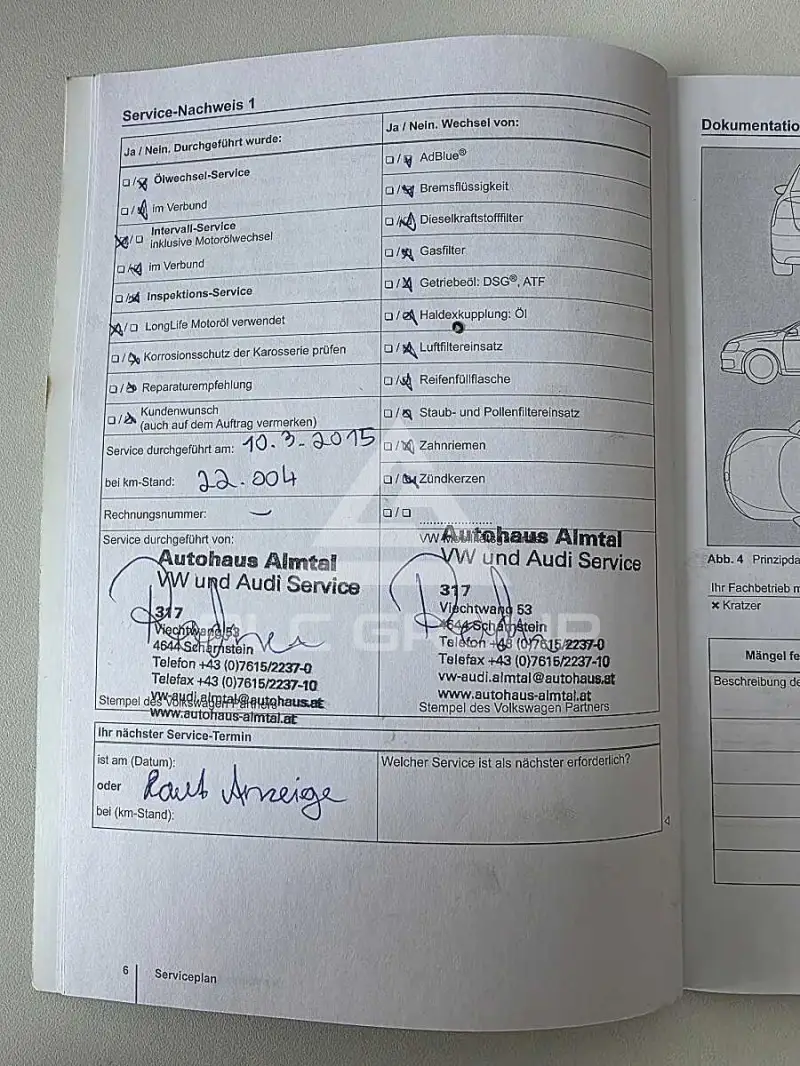 Service-Nachweis 1
Ja / Nein. Durchgeführt wurde:
Ölwechsel-Service
im Verbund
Intervall-Service
inklusive Motorölwechsel
im Verbund
Inspektions-Service
LongLife Motoröl verwendet
Korrosionsschutz der Karosserie prüfen
Reparaturempfehlung
Kundenwunsch
(auch auf dem Auftrag vermerken)
Service durchgeführt am: 10.3-2015
bei km-Stand: 22.004
Rechnungsnummer: —
Service durchgeführt von:
Autohaus Almtal
VW und Audi Service
317
Viechtwang 53
4644 Scharnstein
Telefon +43 (0)7615/2237-0
Telefax +43 (0)7615/2237-10
vw-audi.almtal@autohaus.at
Stempel des Volkswagen Partners
www.autohaus-almtal.at
Ja / Nein. Wechsel von:
AdBlue®
Bremsflüssigkeit
Dieselkraftstofffilter
Gasfilter
Getriebeöl: DSG®, ATF
Haldexkupplung: Öl
Luftfiltereinsatz
Reifenfüllflasche
Staub- und Pollenfiltereinsatz
Zahnriemen
Zündkerzen
VW
Autohaus Almtal
VW und Audi Service
317
Viechtwang 53
4644 Scharnstein
Telefon +43 (0)7615/2237-0
Telefax +43 (0)7615/2237-10
vw-audi.almtal@autohaus.at
www.autohaus-almtal.at
Stempel des Volkswagen Partners
Ihr nächster Service-Termin
ist am (Datum):
oder Laut Anzeige
bei (km-Stand):
Welcher Service ist als nächster erforderlich?
6 Serviceplan
Dokumentatio
Abb. 4 Prinzipda
Ihr Fachbetrieb m
× Kratzer
Mängel fe
Beschreibung de
GROUP